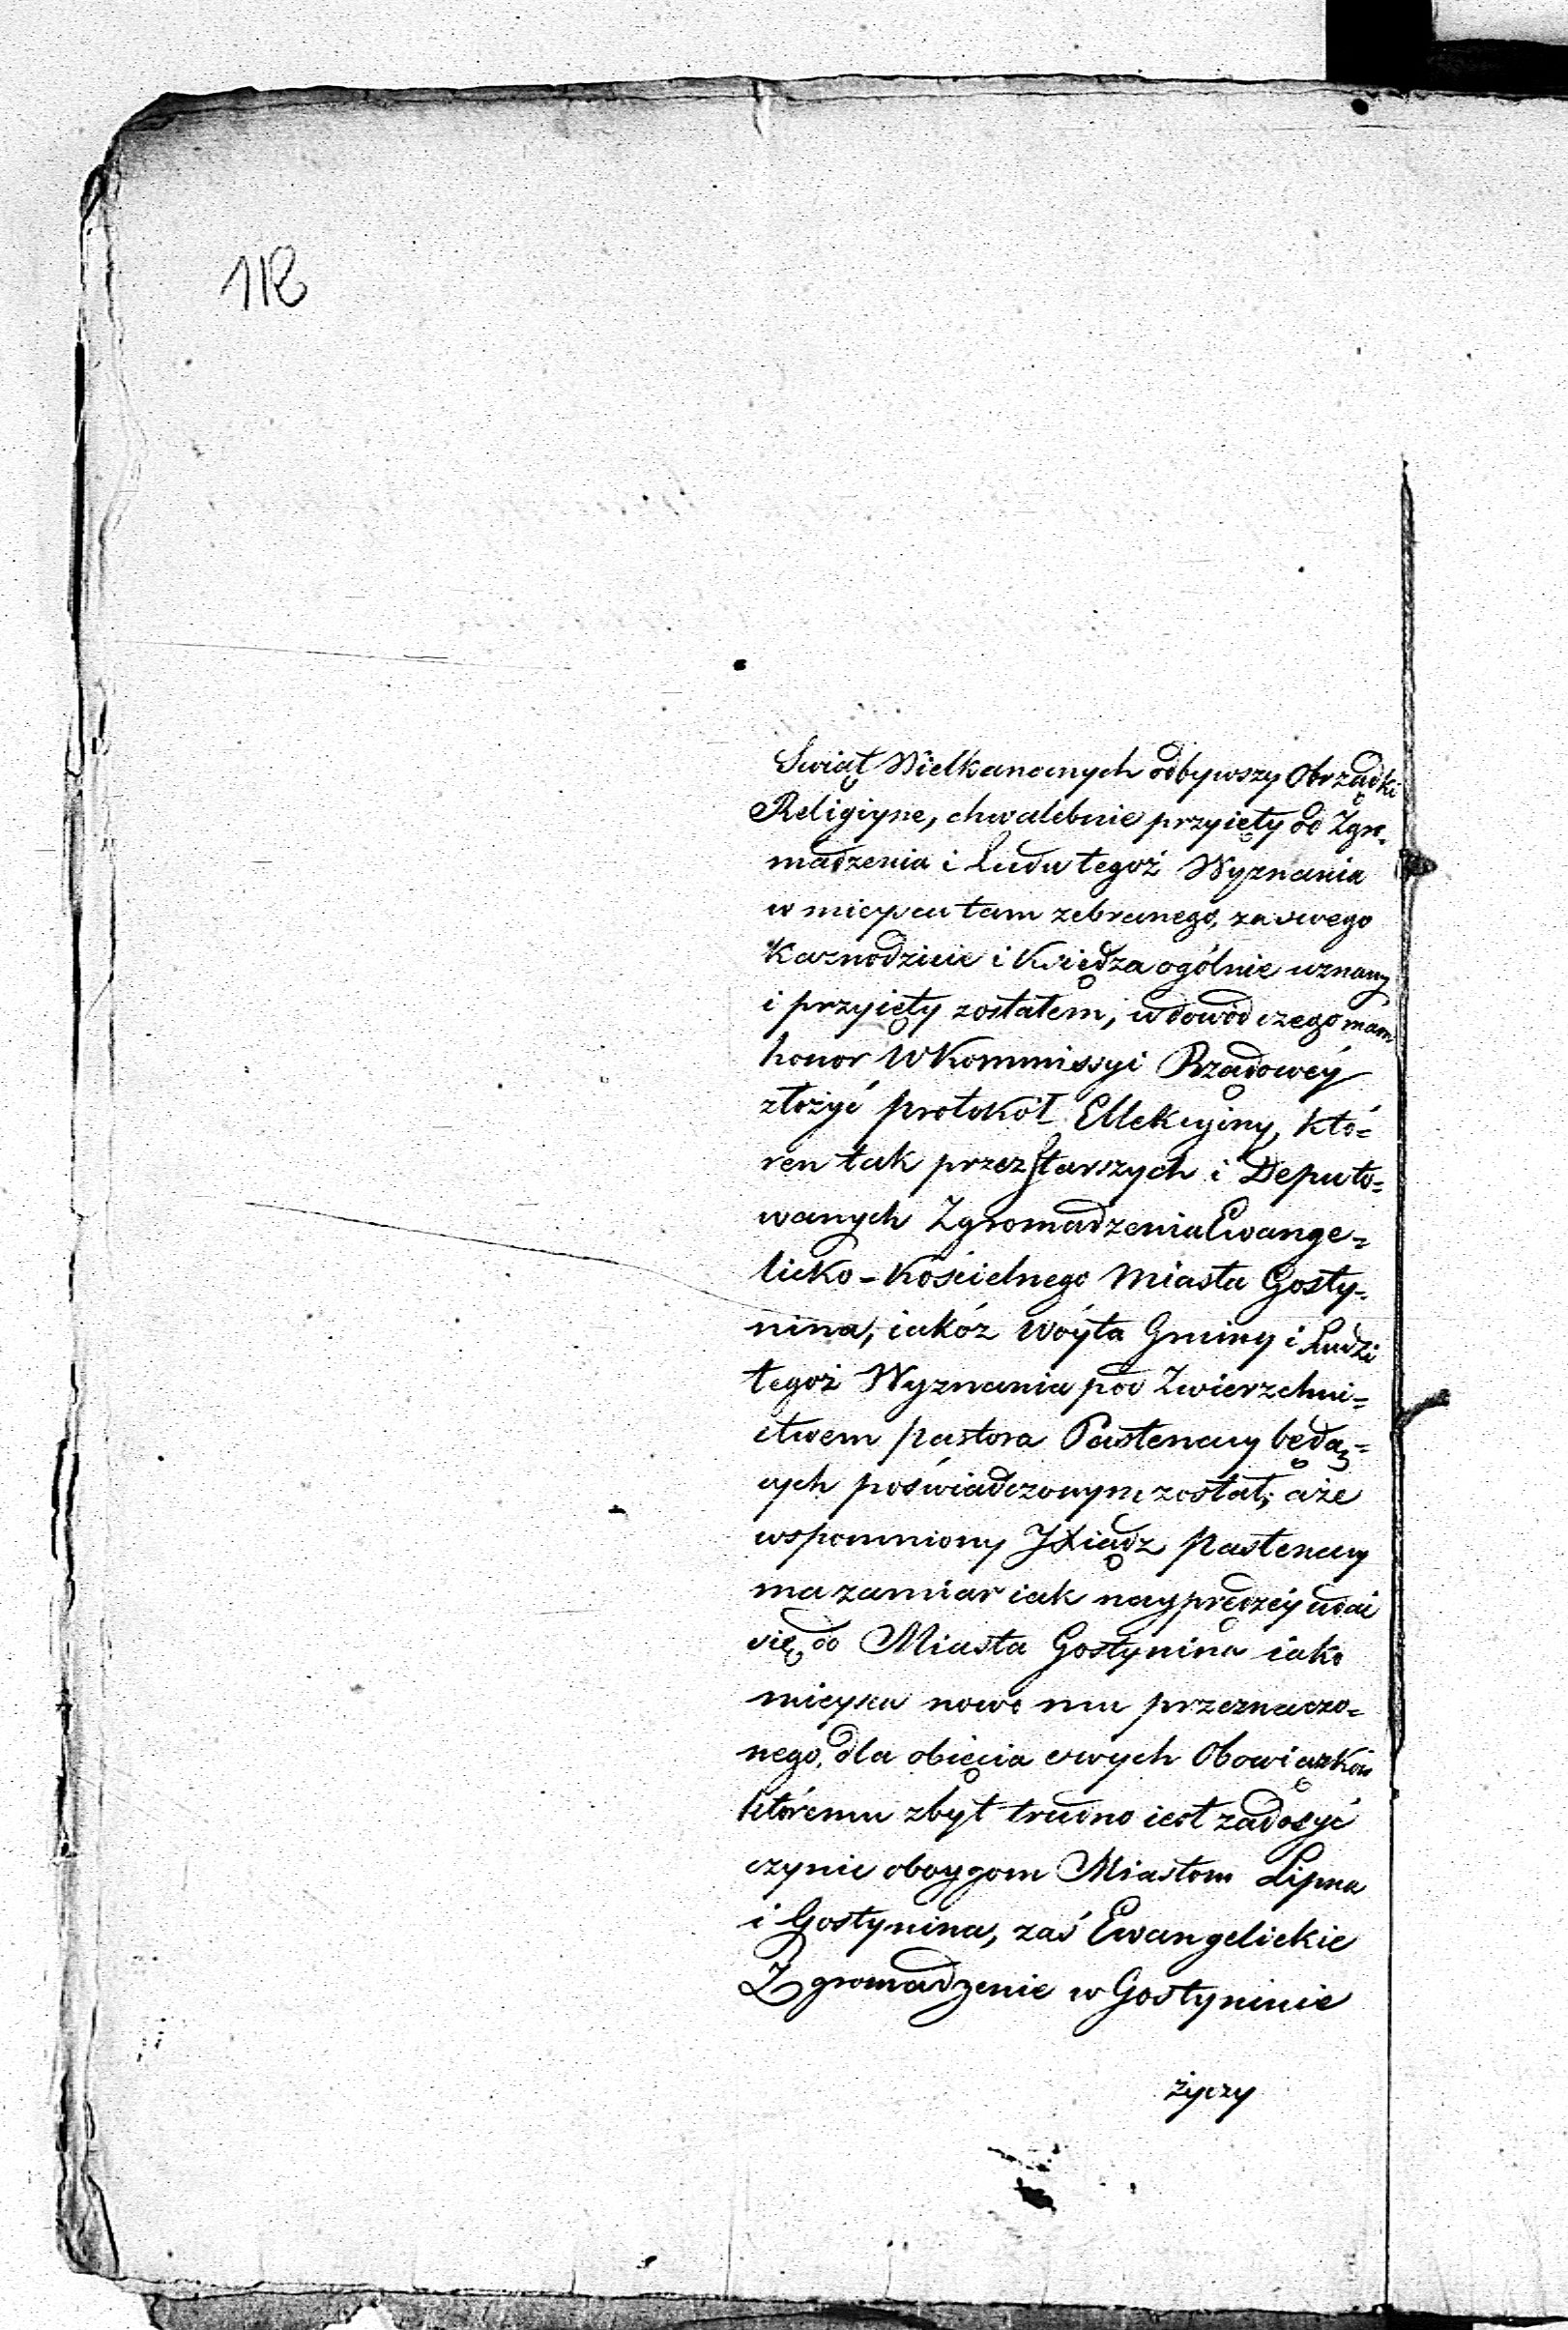 118
Swiąt Wielkanocnych odbywszy Obrządki
Religiyne, chwalebnie przyięty od Zgro-
madzenia i Ludu tegoż Wyznania
w mieyscu tam zebranego, za swego
Kaznodzieie i Księdza ogólnie uznany
i przyięty zostałem, w dowód czego mam
honor W Kommissyi Rządowéy
złożyć protokół Ellekcyiny, któ=
ren tak przez Starszych i Deputo=
wanych Zgromadzenia Ewange=
licko-Kościelnego Miasta Gosty-
nina, iakóż Wóyta Gminy i Ludzi
tegoż Wyznania pod Zwierzchni=
ctwem pastora Pastenacy będą=
cych poświadczonym został; a że
wspomniony JXiądz Pastenacy
ma zamiar iak nayprędzéy udać
się do Miasta Gostynina iako
mieysca nowo mu przeznaczo=
nego, dla obięcia swych Obowiązków
któremu zbyt trudno iest zadosyć
czynić oboygom Miastom Lipna
i Gostynina, zaś Ewangelickie
Zgromadzenie w Gostyninie
życzy